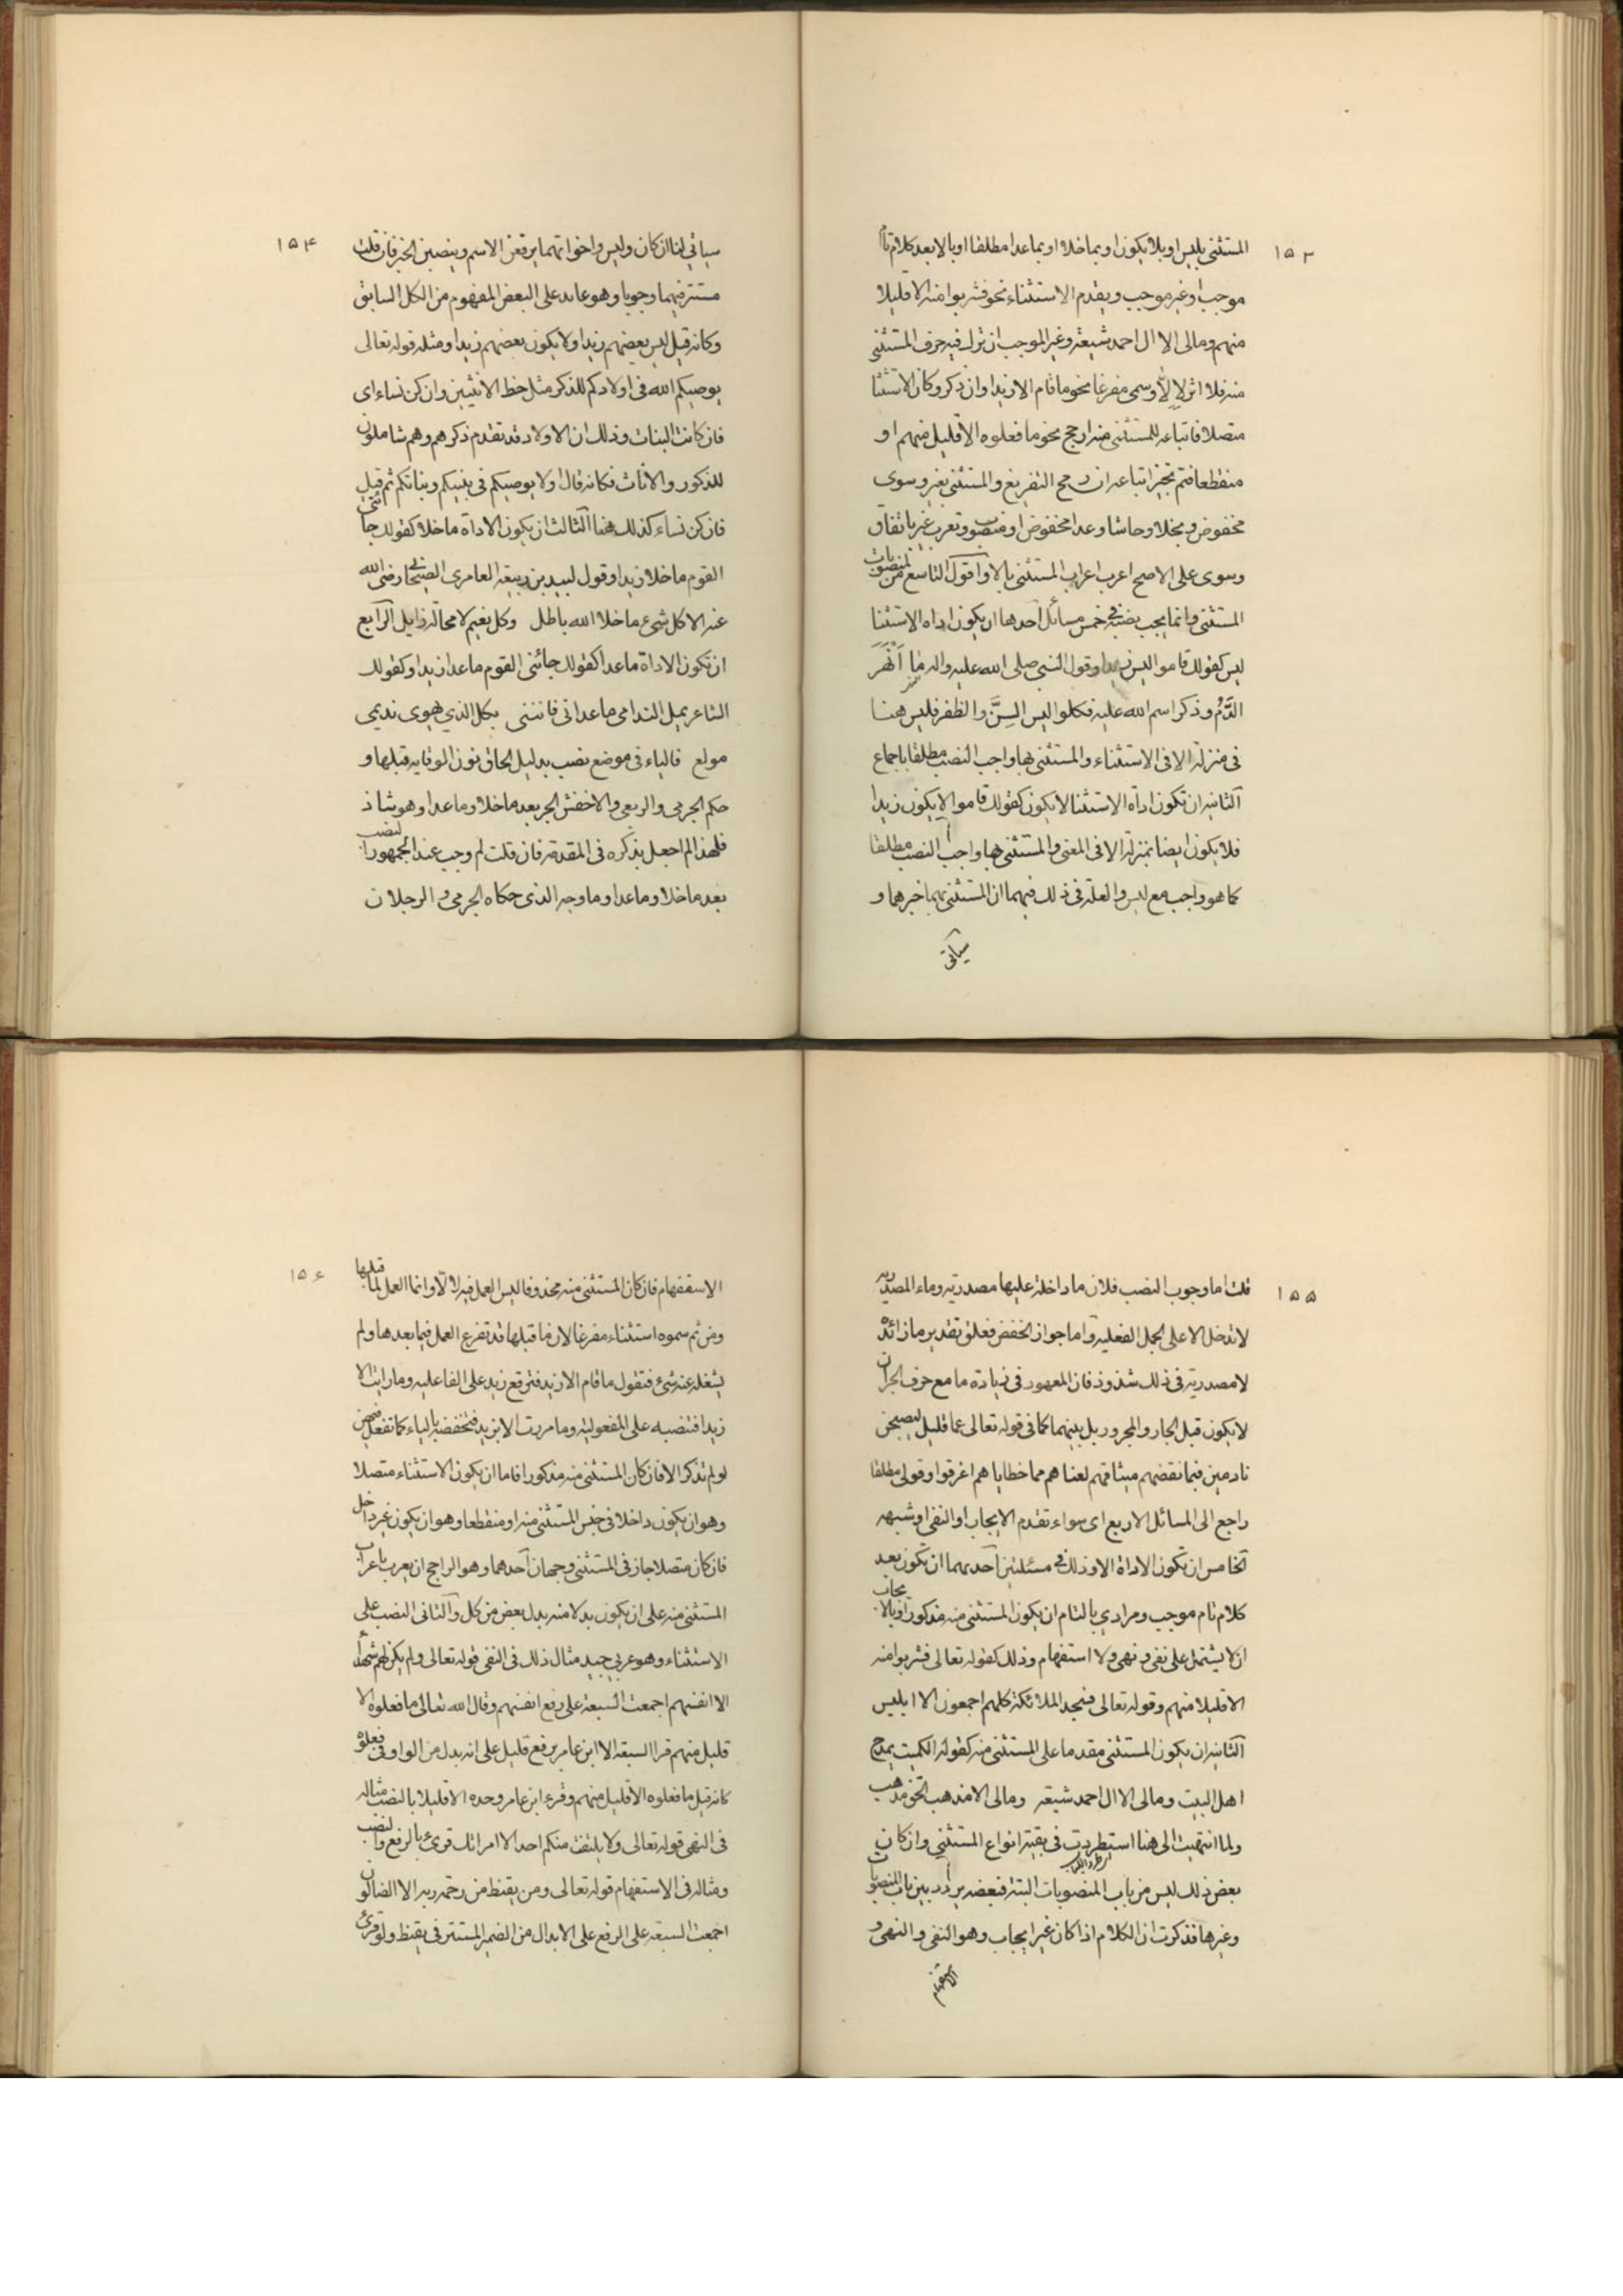 ١٥٣
المستثنى بليس او بلا يكون او بما خلا او بما عدا مطلقا او بالا بعد كلام تام
موجب او غير موجب وتقدم الاستثناء نحو فشربوا منه الا قليلا
منهم ومالى الا ال احمد شيعة وغير الموجب ان ترك فيه حرف المستثنى
منه فلا اثر لالا وسمى مفرغا نحو ما قام الا زيد وان ذكر وكان الاستثنا
متصلا فاتباعه للمستثنى منه ارجح نحو ما فعلوه الا قليل منهم او
منقطعا فتم تجيز اتباعه ان صح التفريغ والمستثنى بغير وسوى
مخفوض وبخلا وحاشا وعدا مخفوض او منصوب وتعرب غير باتفاق
وسوى على الاصح اعراب المستثنى بالا واقول التاسع من المنصوبات
المستثنى وانما يجب نصبه فى خمس مسائل احدها ان يكون اداة الاستثنا
ليس كقولك قاموا ليس زيدا وقول النبى صلى الله عليه واله ما اَنْهَرَ
الدَّمُ وذكر اسم الله عليه فكلوا ليس السِنَّ والظفر فليس هنا
فى منزلة الا فى الاستثناء والمستثنى بها واجب النصب مطلقا باجماع
الثانية ان تكون اداة الاستثنا لا يكون كقولك قاموا لا يكون زيدا
فلا يكون ايضا بمنزلة الا فى المعنى والمستثنى بها واجب النصب مطلقا
كما هو واجب مع ليس والعلة فى ذلك فيهما ان المستثنى بهما خبرهما و
سيأتى
١٥۴
سيأتي لنا ان كان وليس واخواتهما يرفعن الاسم وينصبن الخبر فان قلت
مستتر فيهما وجوبا وهو عائد على البعض المفهوم من الكل السابق
وكانه قيل ليس بعضهم زيدا ولا يكون بعضهم زيدا ومثله قوله تعالى
يوصيكم الله فى اولادكم للذكر مثل حظ الانثيين وان كن نساء اى
فان كانت البنات وذلك ان الاولاد قد تقدم ذكرهم وهم شاملون
للذكور والاناث فكانه قال اولا يوصيكم فى بنيكم وبناتكم ثم قيل
فان كن نساء كذلك هنا الثالث ان يكون الاداة ماخلا كقولك جائنى
القوم ماخلا زيدا وقول لبيد بن ربيعة العامرى الصحابى رضى الله
عنه الا كل شىء ماخلا الله باطل وكل نعيم لا محالة زايل الرابع
ان تكون الاداة ماعدا كقولك جائنى القوم ماعدا زيدا وكقولك
الشاعر يمل الندامى ماعدانى فاننى بكل الذي يهوى نديمى
مولع فالياء فى موضع نصب بدليل لحاق نون الوقاية قبلها و
حكم الجرمى والربعى والاخفش الجر بعد ماخلا وماعدا وهو شاذ
فلهذا لم اجعل بذكره فى المقدمة فان قلت لم وجب عند الجمهور النصب
بعد ماخلا وماعدا وما وجه الذى حكاه الجرمى و الرجلان
١٥٥
قلت اما وجوب النصب فلان ما داخلة عليها مصدرية وماء المصدرية
لا تدخل الا على الجمل الفعلية واما جواز الخفض فعلى تقدير ما زائدة
لا مصدرية فى ذلك شذوذ فان المعهود فى زيادة ما مع حرف الجر ان
لا يكون قبل الجار والمجرور بل بينهما كما فى قوله تعالى عما قليل ليصبحن
نادمين فبما نقضهم ميثاقهم لعناهم مما خطاياهم اغرقوا وقولى مطلقا
راجع الى المسائل الاربع اى سواء تقدم الايجاب او النفى او شبهه
الخامس ان تكون الاداة الا وذلك فى مسئلتين احديهما ان تكون بعد
كلام تام موجب ومرادي بالتام ان يكون المستثنى منه مذكورا وبالايجاب
ان لا يشتمل على نفى ونهى ولا استفهام وذلك كقوله تعالى فشربوا منه
الا قليلا منهم وقوله تعالى فسجد الملائكة كلهم اجمعون الا ابليس
الثانية ان يكون المستثنى مقدما على المستثنى منه كقوله الكميت يمدح
اهل البيت ومالى الا ال احمد شيعة ومالى الا مذهب الحق مذهب
ولما انتهيت الى هنا استطردت فى بقية انواع المستثنى وان كان
بعض ذلك ليس من باب المنصوبات البتة فبعضه يردد بين باب المنصوبات
وغيرها فذكرت ان الكلام اذا كان غير ايجاب وهو النفى والنهى و
الاستفهام
١٥۶
الاستفهام فان كان المستثنى منه محذوفا ليس العمل فيه لالا وانما العمل لما قبلها
ومن ثم سموه استثناء مفرغا لان ما قبلها قد تفرغ العمل فيما بعدها ولم
يشغله عنه شىء فتقول ما قام الا زيد فترفع زيد على الفاعلية وما رايت الا
زيدا فتنصبه على المفعولية وما مررت الا بزيد فتخفضه بالياء كما تفعل فيهن
لو لم تذكر الا فان كان المستثنى منه مذكورا فاما ان يكون الاستثناء متصلا
وهو ان يكون داخلا فى جنس المستثنى منه او منقطعا وهو ان يكون غير داخل
فان كان متصلا جاز فى المستثنى وجهان احدهما وهو الراجح ان يعرب باعراب
المستثنى منه على ان يكون بدلا منه بدل بعض من كل والثانى النصب على
الاستثناء وهو عربي جيد مثال ذلك فى النفى قوله تعالى ولم يكن لهم شهداء
الا انفسهم اجمعت السبعة على رفع انفسهم وقال الله تعالى ما فعلوه الا
قليل منهم قرا السبعة الا ابن عامر برفع قليل على انه بدل من الواو فى فعلوه
كانه قيل ما فعلوه الا قليل منهم وقرء ابن عامر وحده الا قليلا بالنصب مثاله
فى النهى قوله تعالى ولا يلتفت منكم احد الا امراتك قرىء بالرفع والنصب
ومثاله فى الاستفهام قوله تعالى ومن يقنط من رحمة ربه الا الضالون
اجمعت السبعة على الرفع على الابدال من الضمير المستتر فى يقنط ولو قرئ